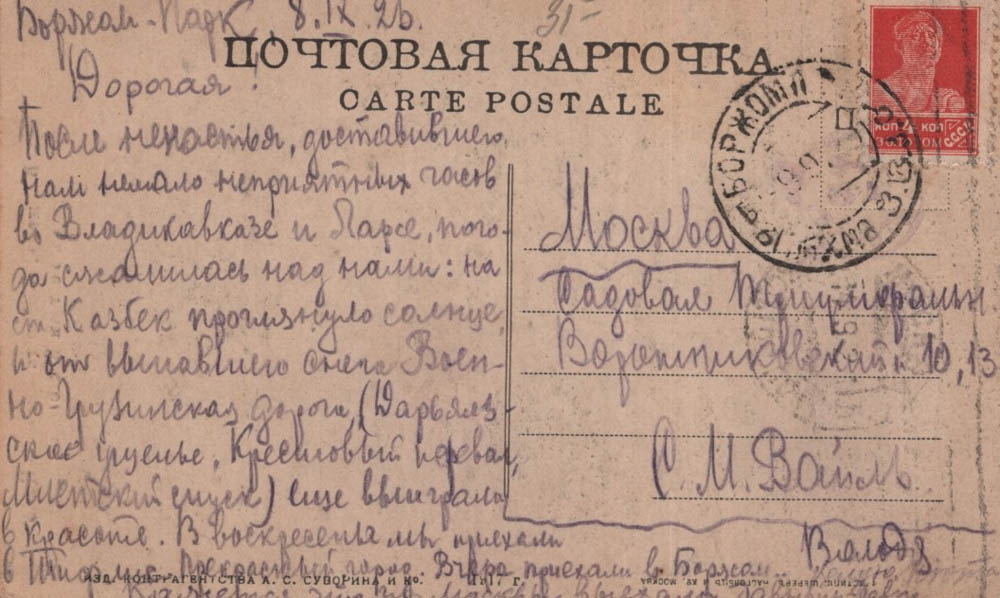 Боржом-Парк 8.IX 26.
31-
ПОЧТОВАЯ КАРТОЧКА
CARTE POSTALE
Дорогая!
После ненастья, доставившего
нам немало неприятных часов
во Владикавказе и Ларсе, пого-
да сжалилась над нами: на
ст. Казбек проглянуло солнце,
и от выпавшего снега Воен-
но-Грузинская дорога (Дарьяль-
ское ущелье, Крестовый перевал,
Млетский спуск) еще выиграла
в красоте. В воскресенье мы приехали
в Тифлис. Прекрасный город. Вчера приехали в Боржом.
Володя
БОРЖОМИ
КОП. 4 КОП
СССР
Москва
Садовая Триумфальн.
Воротниковский 10, 13
С. М. Вайль
ИЗД. КОНТРАГЕНТСТВА А. С. СУВОРИНА И Ко. 1917 г.